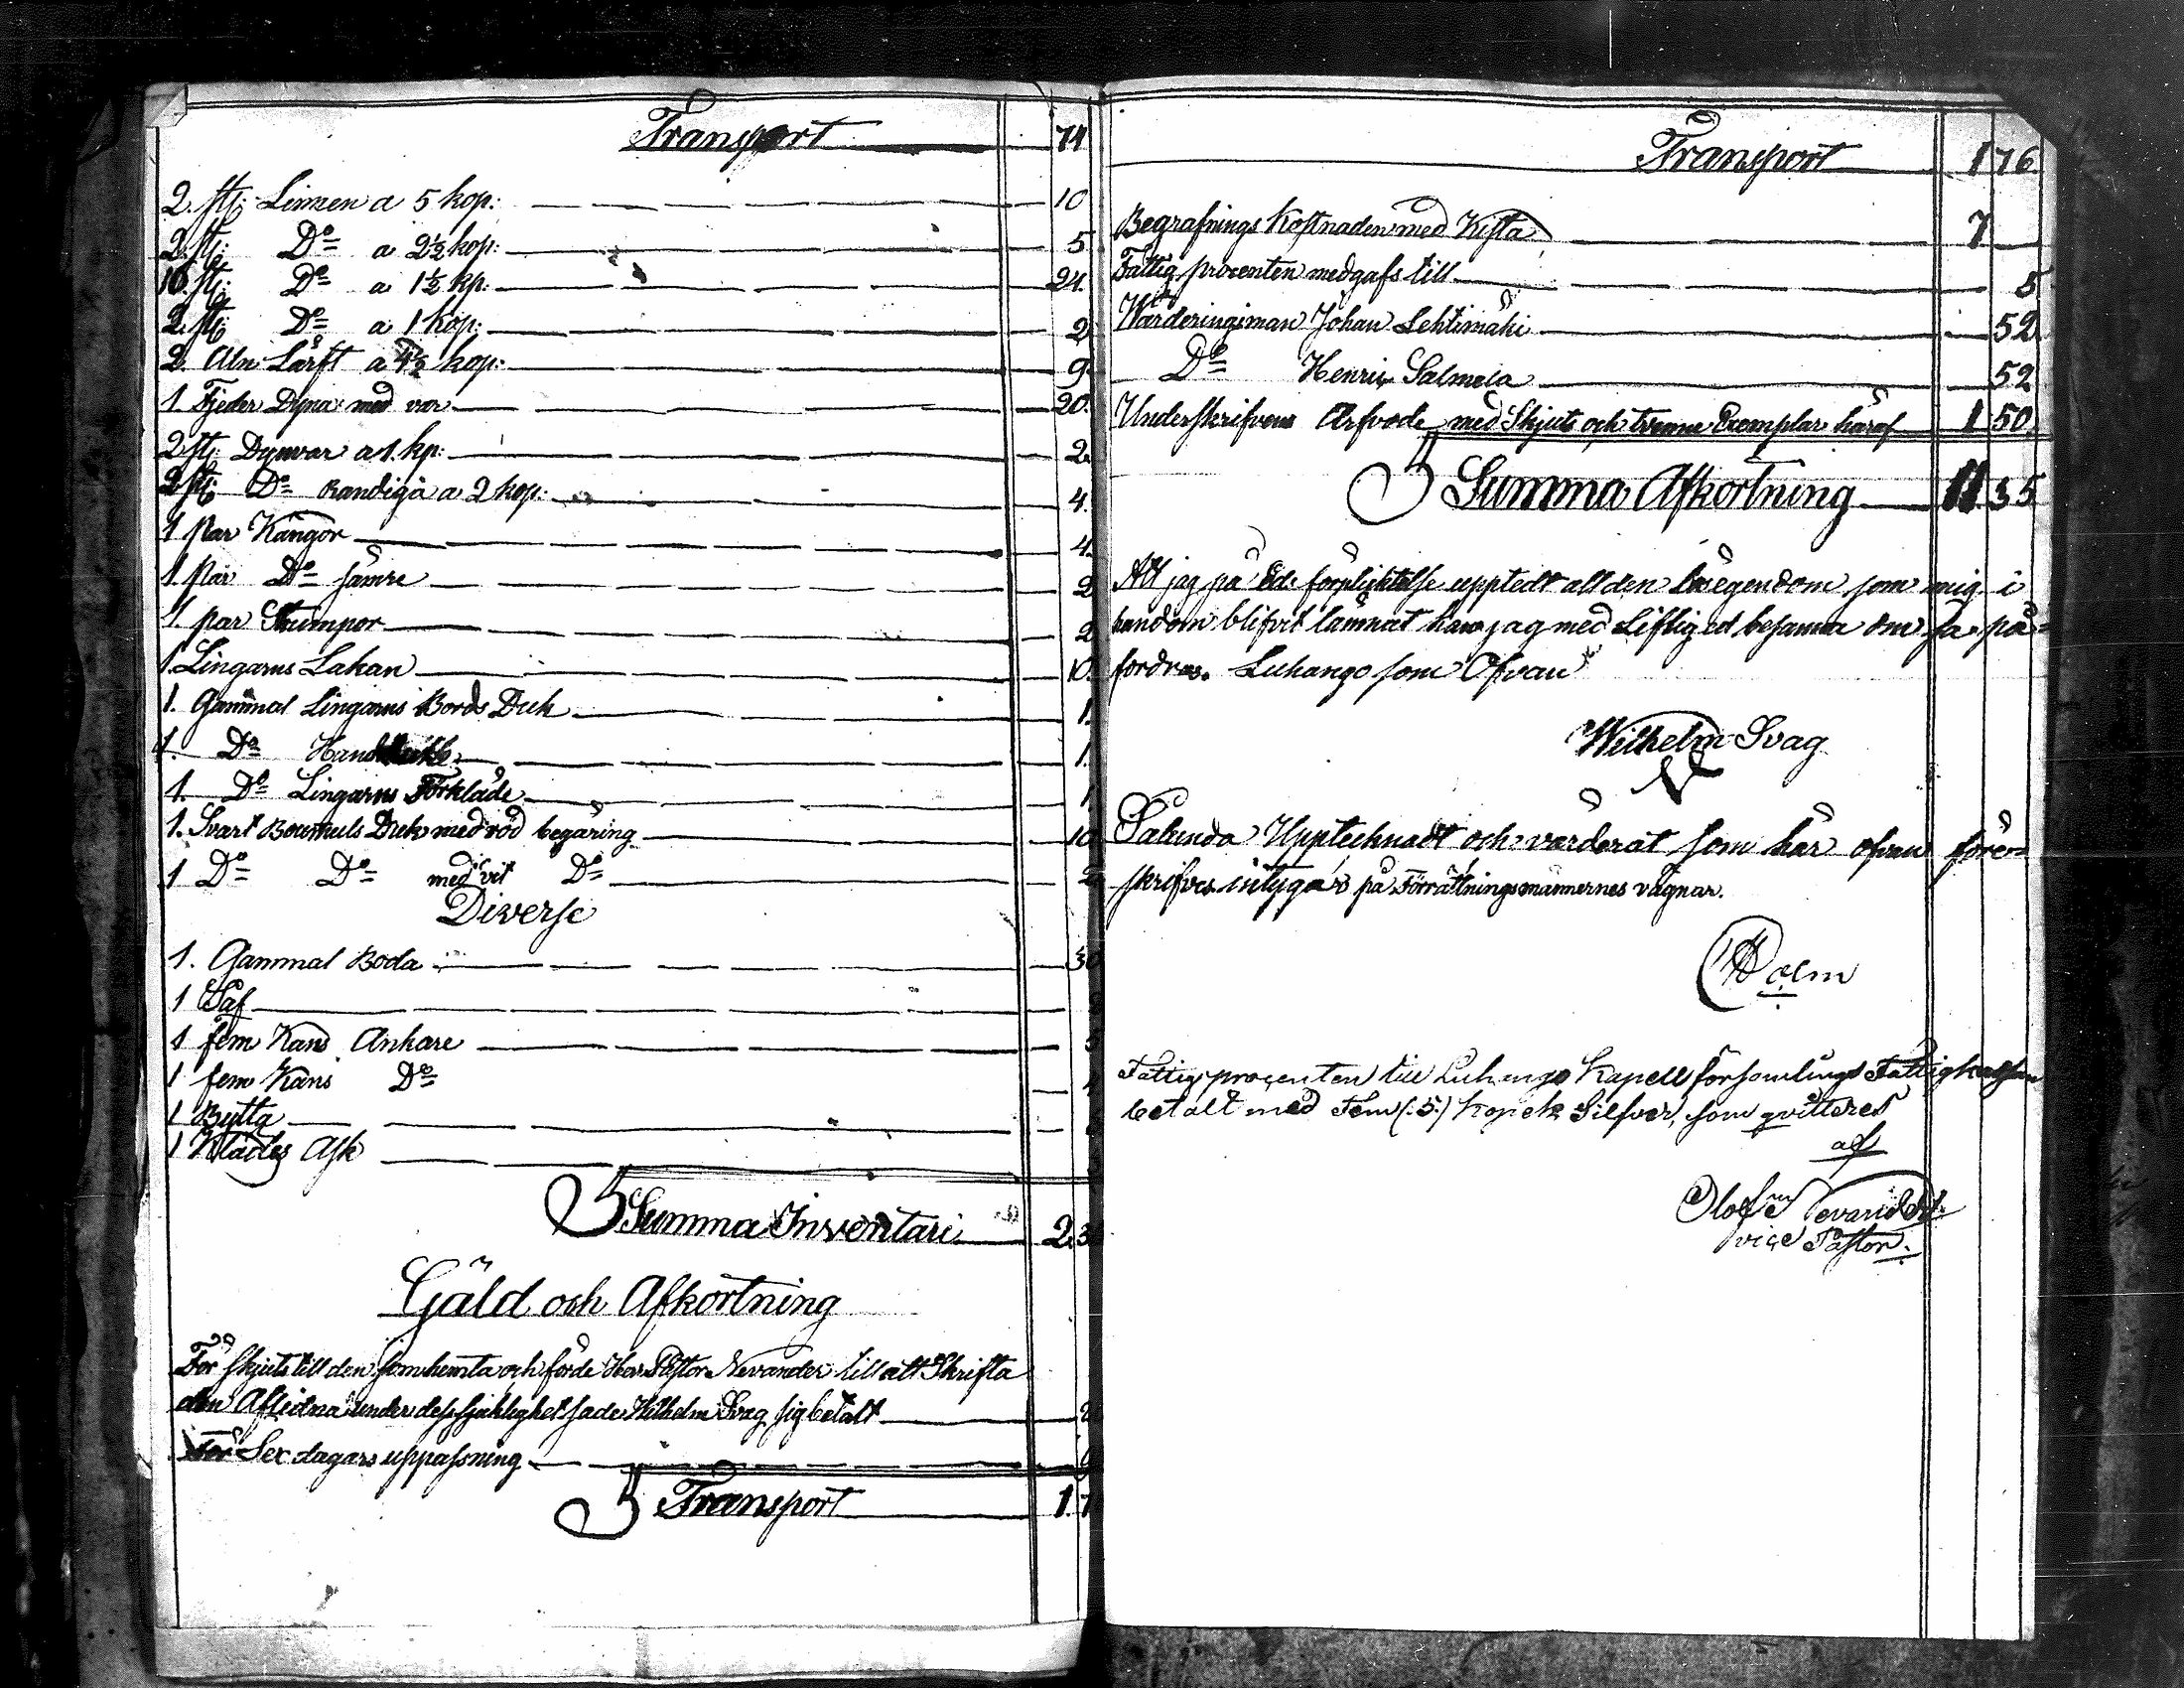 Transport 74
2. stj: Linnen a 5 kop: 10
2. stj: Do a 2½ kop: 5
16. stj: Do a 1½ kp. 24.
2. stj: Do a 1 kop: 2
2. Aln Lärft a 4½ kop: 9
1. Fjeder Dyna med var 20.
2 stj. Dynvar a 1. kp: 2
2 stj: Do Randiga a 2 kop: 4.
1 Par Kängor 4
1 Par Do sämre 2
1. par Strumpor 2
1. Lingarns Lakan 10.
1. Gammal Lingarns Bords Duk 1.
1. Do Hand 1.
1. Do Lingarns Förkläde 1
1. Svart Bourmuls Duk med röd begäring 10
1 Do Do med vit Do 2
Diverse
1. Gammal Boda 3
1 Såf
1 fem Kans Ankare 5
1 fem Kans Do
1 Bytta
1 Klädes Ask
Summa Inventari 2 3
Gäld och Afkortning
För skjuts till den som hemta och förde Herr Pastor Nevander till att Skrifta
den Aflidna under dess sjuklighet sade Wilhelm Svag sig betalt 2
För Sex dagars uppassning
Transport 1. 7
Transport 1 76
Begrafnings Kostnaden med Kista 7
Fattig procenten medgafs till 5
Wärderingsman Johan Lehtimäki 52
Do Henrik Salmela 52
Underskrifvens Arfvode med Skjuts och tvenne Exemplar häraf 1 50.
Summa Afkortning 11. 35
Att jag på Eds förplicktelse upptedt all den lösegendom som mig i
handom blifvit lämnat kan jag med Liflig ed besanna om så på=
fordras. Luhango som Ofvan
Wilhelm Svag
Sålunda Upptecknadt och värderat som här ofvan före=
skrifves intygar på Förrättningsmännernes vägnar.
Holm
Fattigprocenten till Luhango Kapell församlings Fattigkassa
betalt med Fem (:5:) Kopek Silfver, som qvitteres
af
Olof Nevander
vice Pastor.